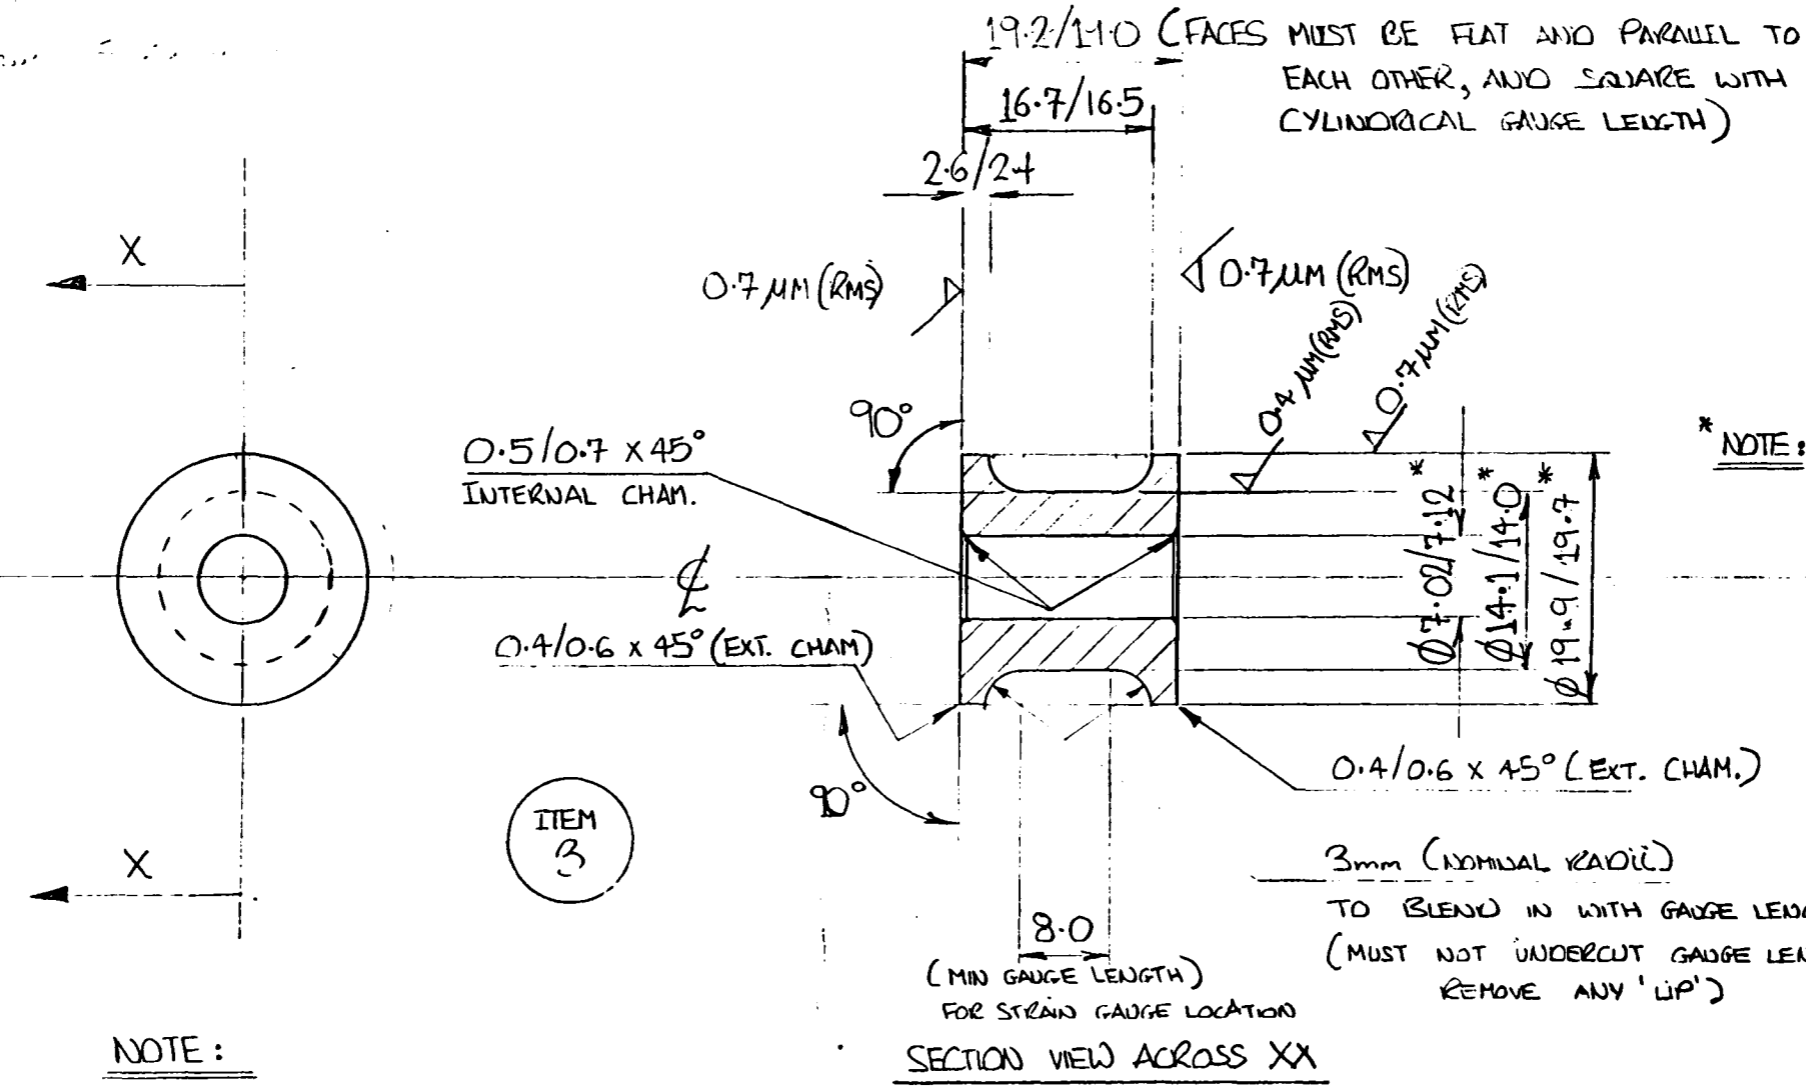 19.2/19.0 (FACES MUST BE FLAT AND PARALLEL TO
EACH OTHER, AND SQUARE WITH
CYLINDRICAL GAUGE LENGTH)
16.7/16.5
2.6/2.4
X
0.7 µM (RMS)
0.7 µM (RMS)
0.4 µM (RMS)
0.7 µM (RMS)
90°
0.5/0.7 X 45°
INTERNAL CHAM.
* NOTE:
Ø7.02/7.12 *
Ø14.1/14.0 *
Ø19.9/19.7 *
℄
0.4/0.6 x 45° (EXT. CHAM)
0.4/0.6 x 45° (EXT. CHAM.)
90°
ITEM
3
X
3mm (NOMINAL RADII)
TO BLEND IN WITH GAUGE
(MUST NOT UNDERCUT GAUGE
REMOVE ANY 'LIP')
8.0
(MIN GAUGE LENGTH)
FOR STRAIN GAUGE LOCATION
NOTE:
SECTION VIEW ACROSS XX